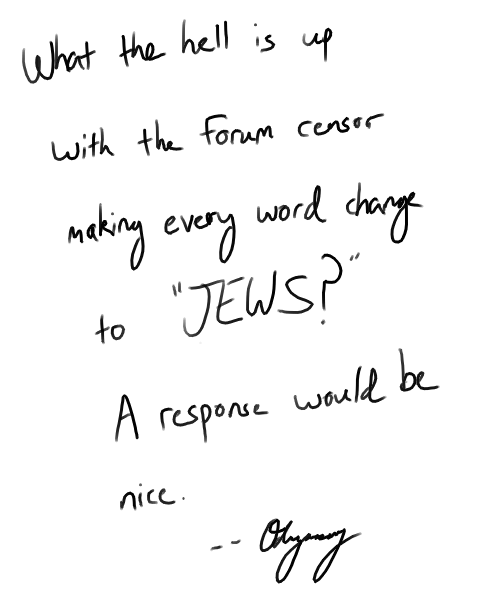 What the hell is up
with the forum censor
making every word change
to "JEWS?"
A response would be
nice.
--